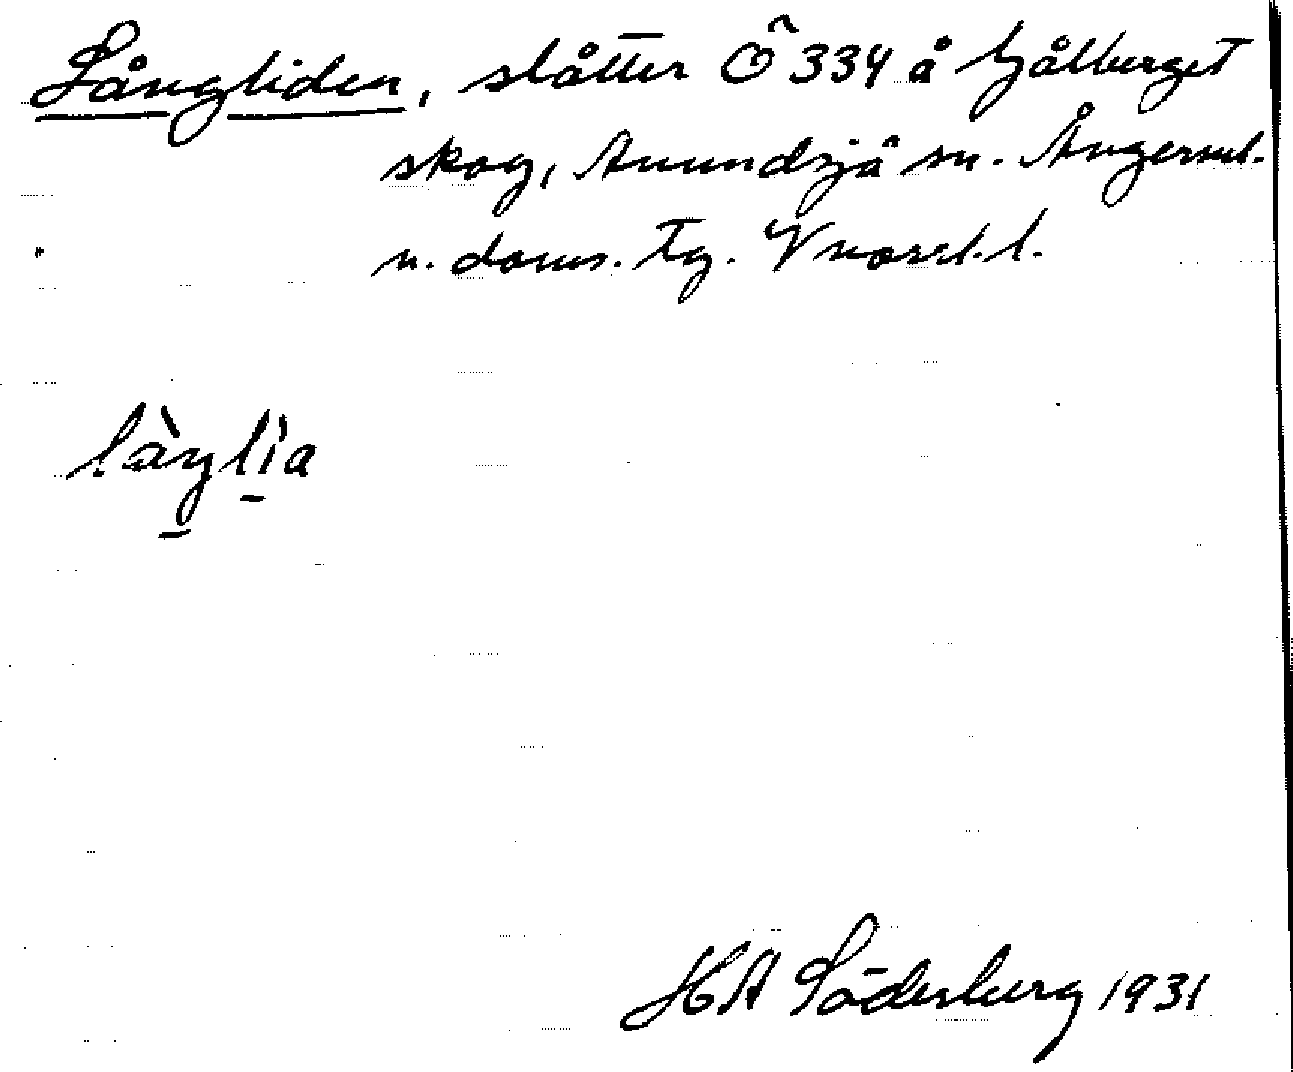 Långliden, slåtter Ö 334 å Gålberget
skog, Anundsjö sn. Ångerml.
n. doms. tg. Vnorrl. l.
làŋlìa
HA Söderberg 1931